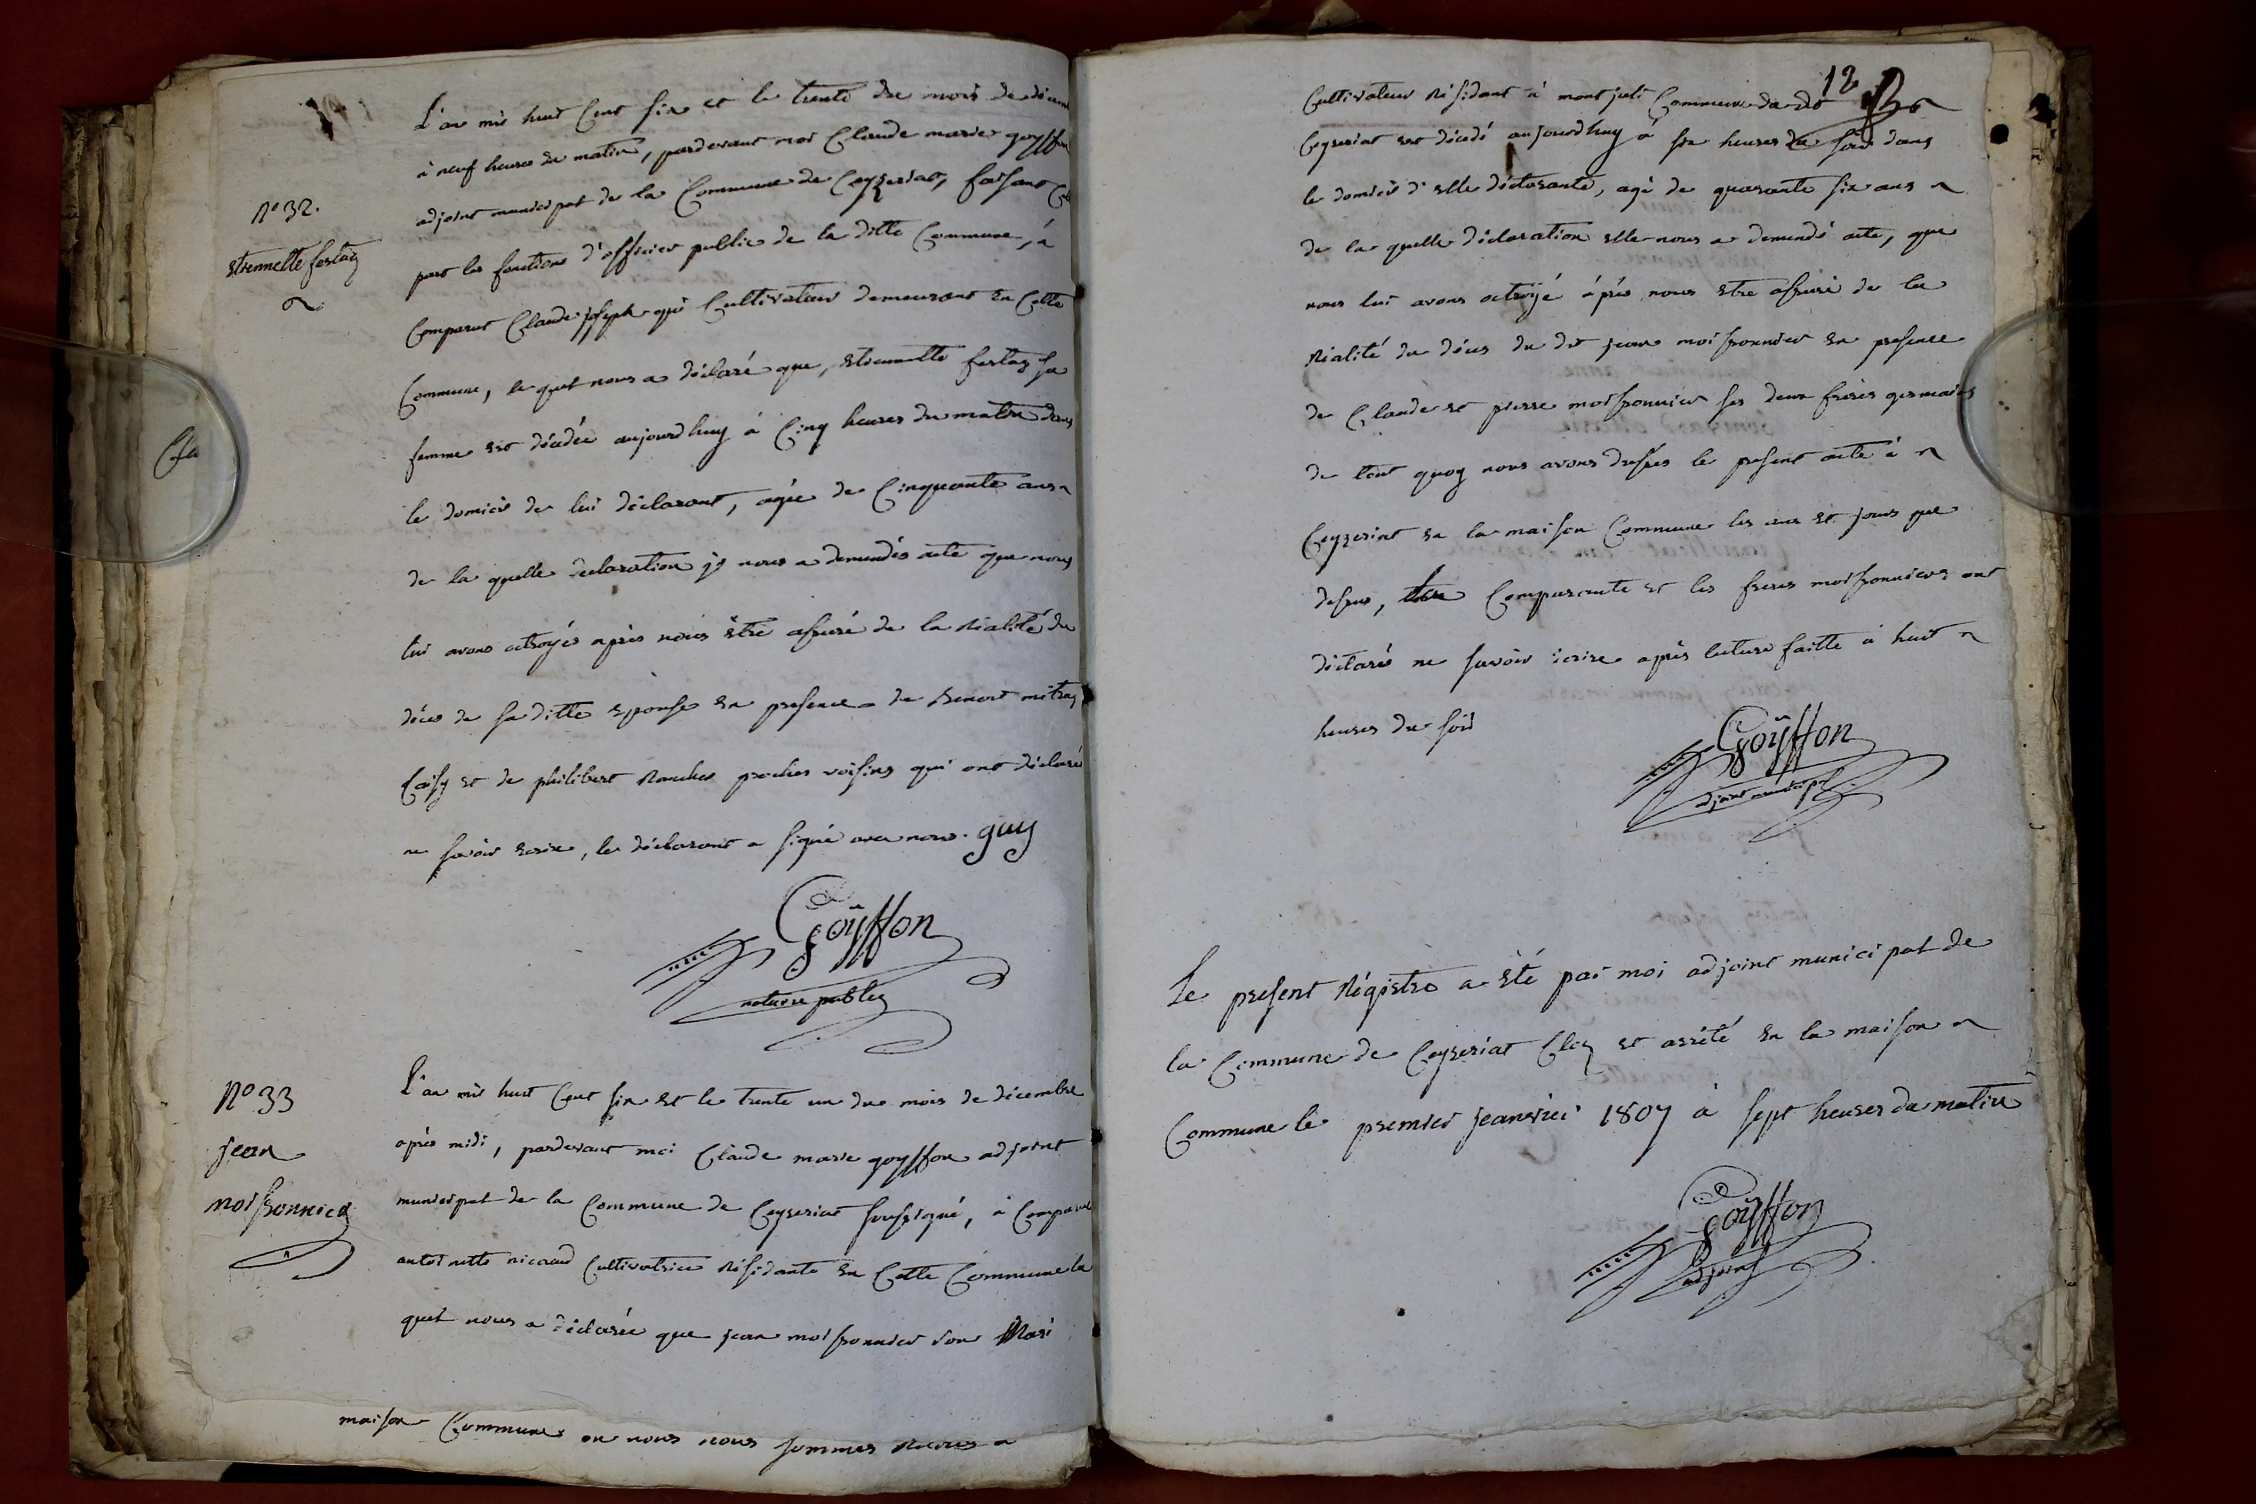 L'an mil huit Cent six et le trente du mois de décem
à neuf heures du matin, pardevant moi Claude marie goyffon
adjoint municipal de la Commune de Ceyzeriat, faisant
part les fonctions d'officier public de la ditte Commune, à
N° 32.
Comparut Claude joseph guÿ Cultivateur demeurant en Cette
Etiennette festaz
Commune, le quel nous a déclaré que, Etiennette festaz sa
femme est décédée aujourd'huy à Cinq heures du matin dans
le domicil de lui déclarant, agée de Cinquante ans
de la quelle declaration il nous a demandés acte que nous
lui avons octroyés après nous être assuré de la réalité du
déces de sa ditte Epouse en presence de Benoit
et de philibert proches voisins qui ont déclaré
ne savoir ecrire, le déclarant a signé avec nous. guy
Goÿffon
notaire public
N° 33
jean
moissonnier
L'an mil huit Cent six et le trente un du mois de décembre
après midi, pardevant moi Claude marie goyffon adjoint
municipal de la Commune de Ceyzeriat soussigné, à Comparut
antoinette nicaud Cultivatrice résidante en Cette Commune la
quel nous a déclarée que jean moissonnier son Mari
maison Commune ou nous nous sommes
12
Cultivateur résidant à mont juli Commune du dt
Ceyzeriat est décédé aujourdhuy à six heures du soir dans
le domicil d'elle déclarante, agé de quarante six ans
de la quelle déclaration elle nous a demandé acte, que
nous lui avons octroÿé après nous etre assuré de la
réalité du déces du dit jean moissonnier en presence
de Claude et pierre moissonnier ses deux freres germains
de tout quoy nous avons dressés le present acte à
Ceyzeriat en la maison Commune les an et jour que
dessus, la Comparante et les freres moissonniers ont
déclarés ne savoir écrire après lecture faitte à huit
heures du soir
Goÿffon
adjoint municipal
Le present Régistre a été par moi adjoint municipal de
la Commune de Ceyzeriat Clos et arrêté en la maison
Commune le premier jeanvier 1807 à sept heures du matin
Goÿffon
adjoint